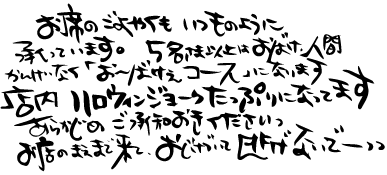 お席のごよやくも いつものように
承っています。 5名さま以上はおばけ、人間
かんけいなく「お〜ばけえコース」になります
店内 ハロウィンジョークたっぷりになってます
あらかじめ ご承知おきくださいっ
お店のまえまで来て、おじけづいて逃げないでーっっ